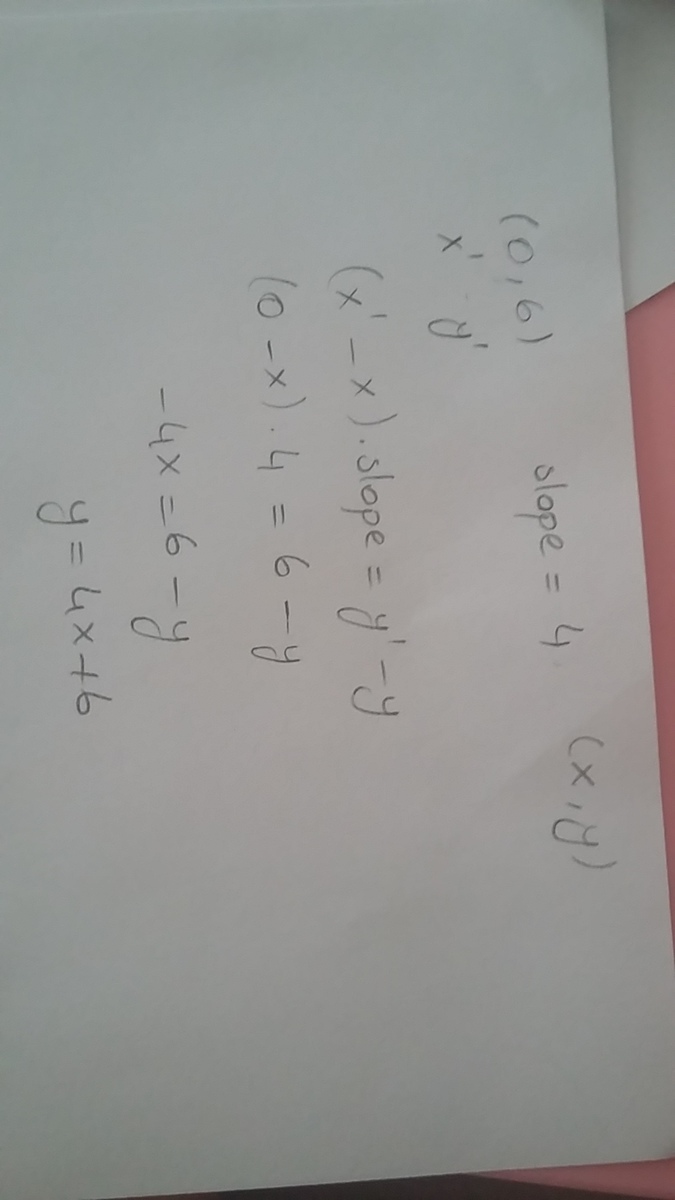 (0,6) slope = 4 (x,y)
x' y'
(x' - x).slope = y' - y
(0 - x).4 = 6 - y
-4x = 6 - y
y = 4x+6